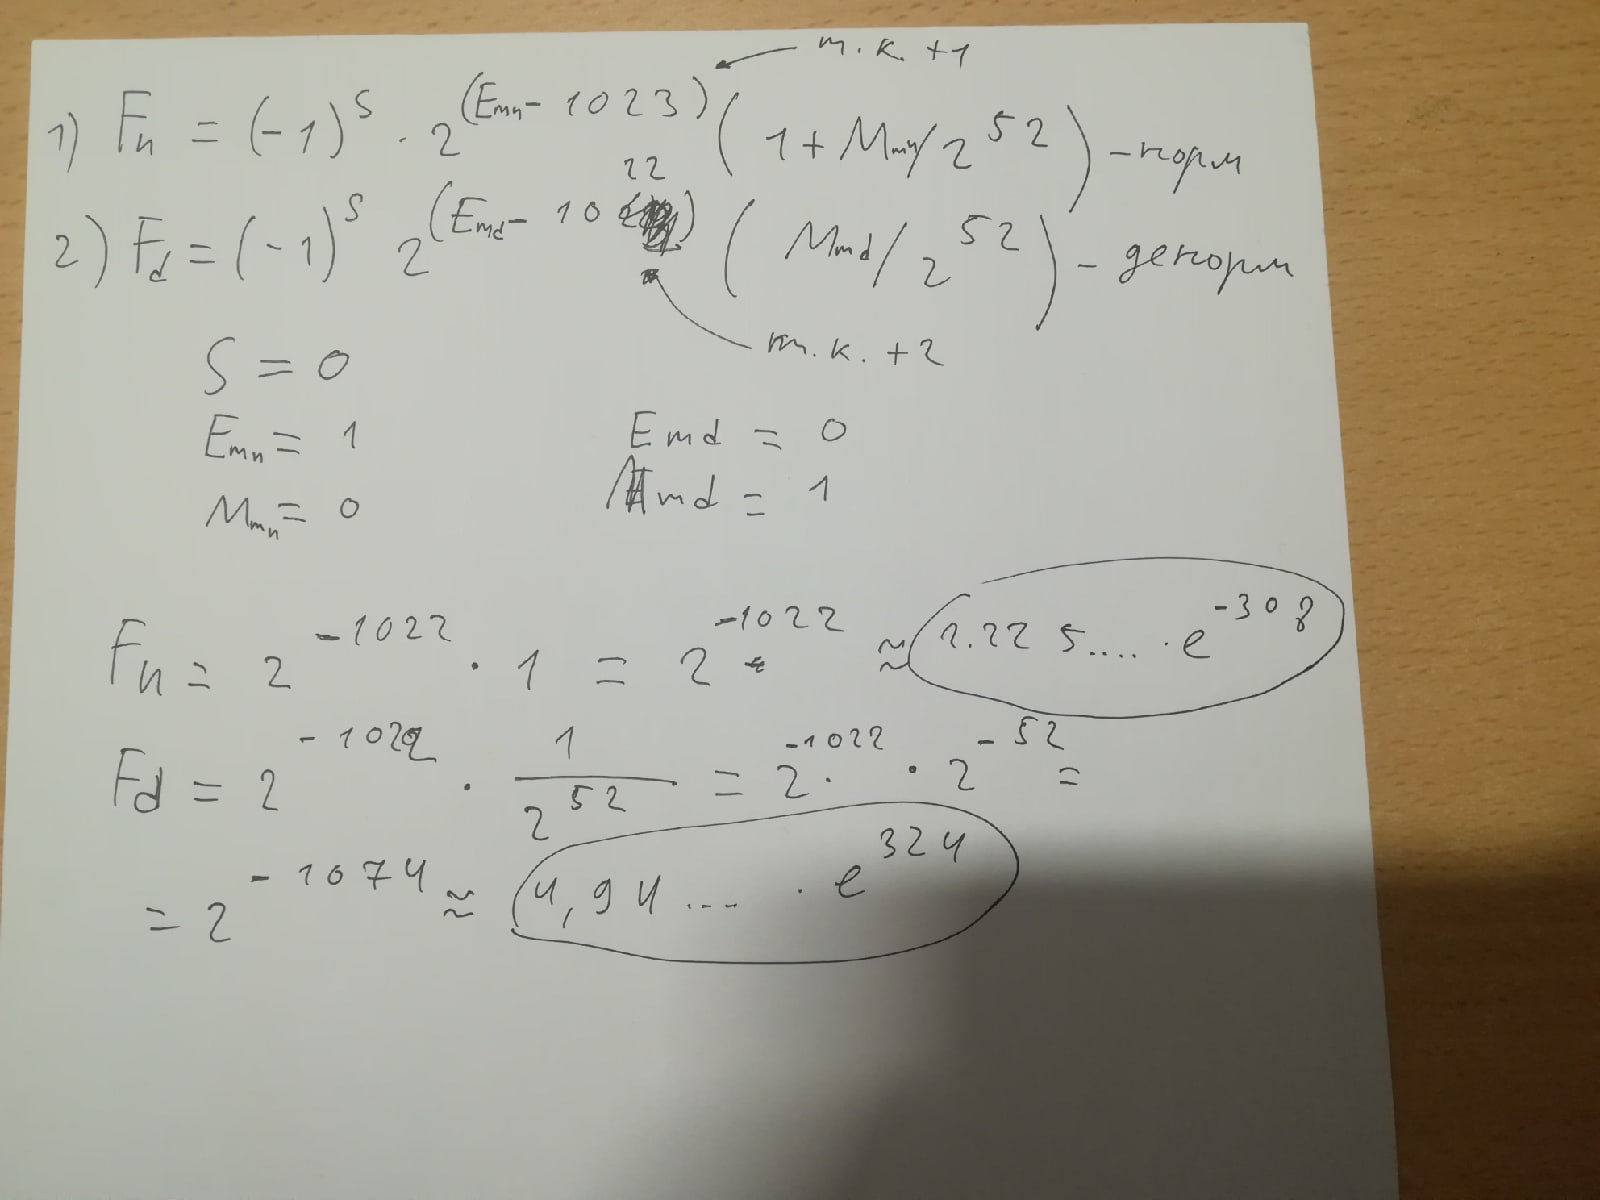 т.к. +1
1) Fn = (-1)^S · 2^(Emn - 1023) (1 + Mmn/2^52) - норм
2) Fd = (-1)^S 2^(Emd - 1022) (Mmd/2^52) - денорм
т.к. +2
S = 0
Emn = 1 Emd = 0
Mmn = 0 Mmd = 1
Fn = 2^-1022 · 1 = 2^-1022 ≈ 2.225.... · e^-308
Fd = 2^-1022 · 1/2^52 = 2^-1022 · 2^-52 =
= 2^-1074 ≈ 4,94... · e^324